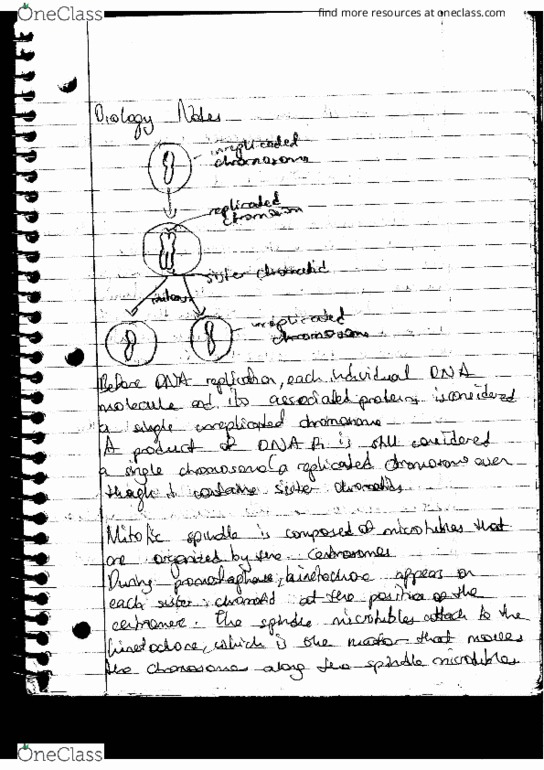 OneClass
find more resources at oneclass.com
Biology Notes
unreplicated
chromosome
replicated
chromosom
sister chromatid
mitosis
unreplicated
chromosome
Before DNA replication, each individual DNA
molecule and its associated proteins is considered
a single unreplicated chromosome
A product of DNA R. is still considered
a single chromosome (a replicated chromosome even
though it contains sister chromatids
Mitotic spindle is composed of microtubles that
are organized by the centrosomes
During prometaphase, kinetochore appears on
each sister chromatid at the position of the
centromere. The spindle microtubles attach to the
kinetochore, which is the motor that moves
the chromosome along the spindle microtubles
OneClass